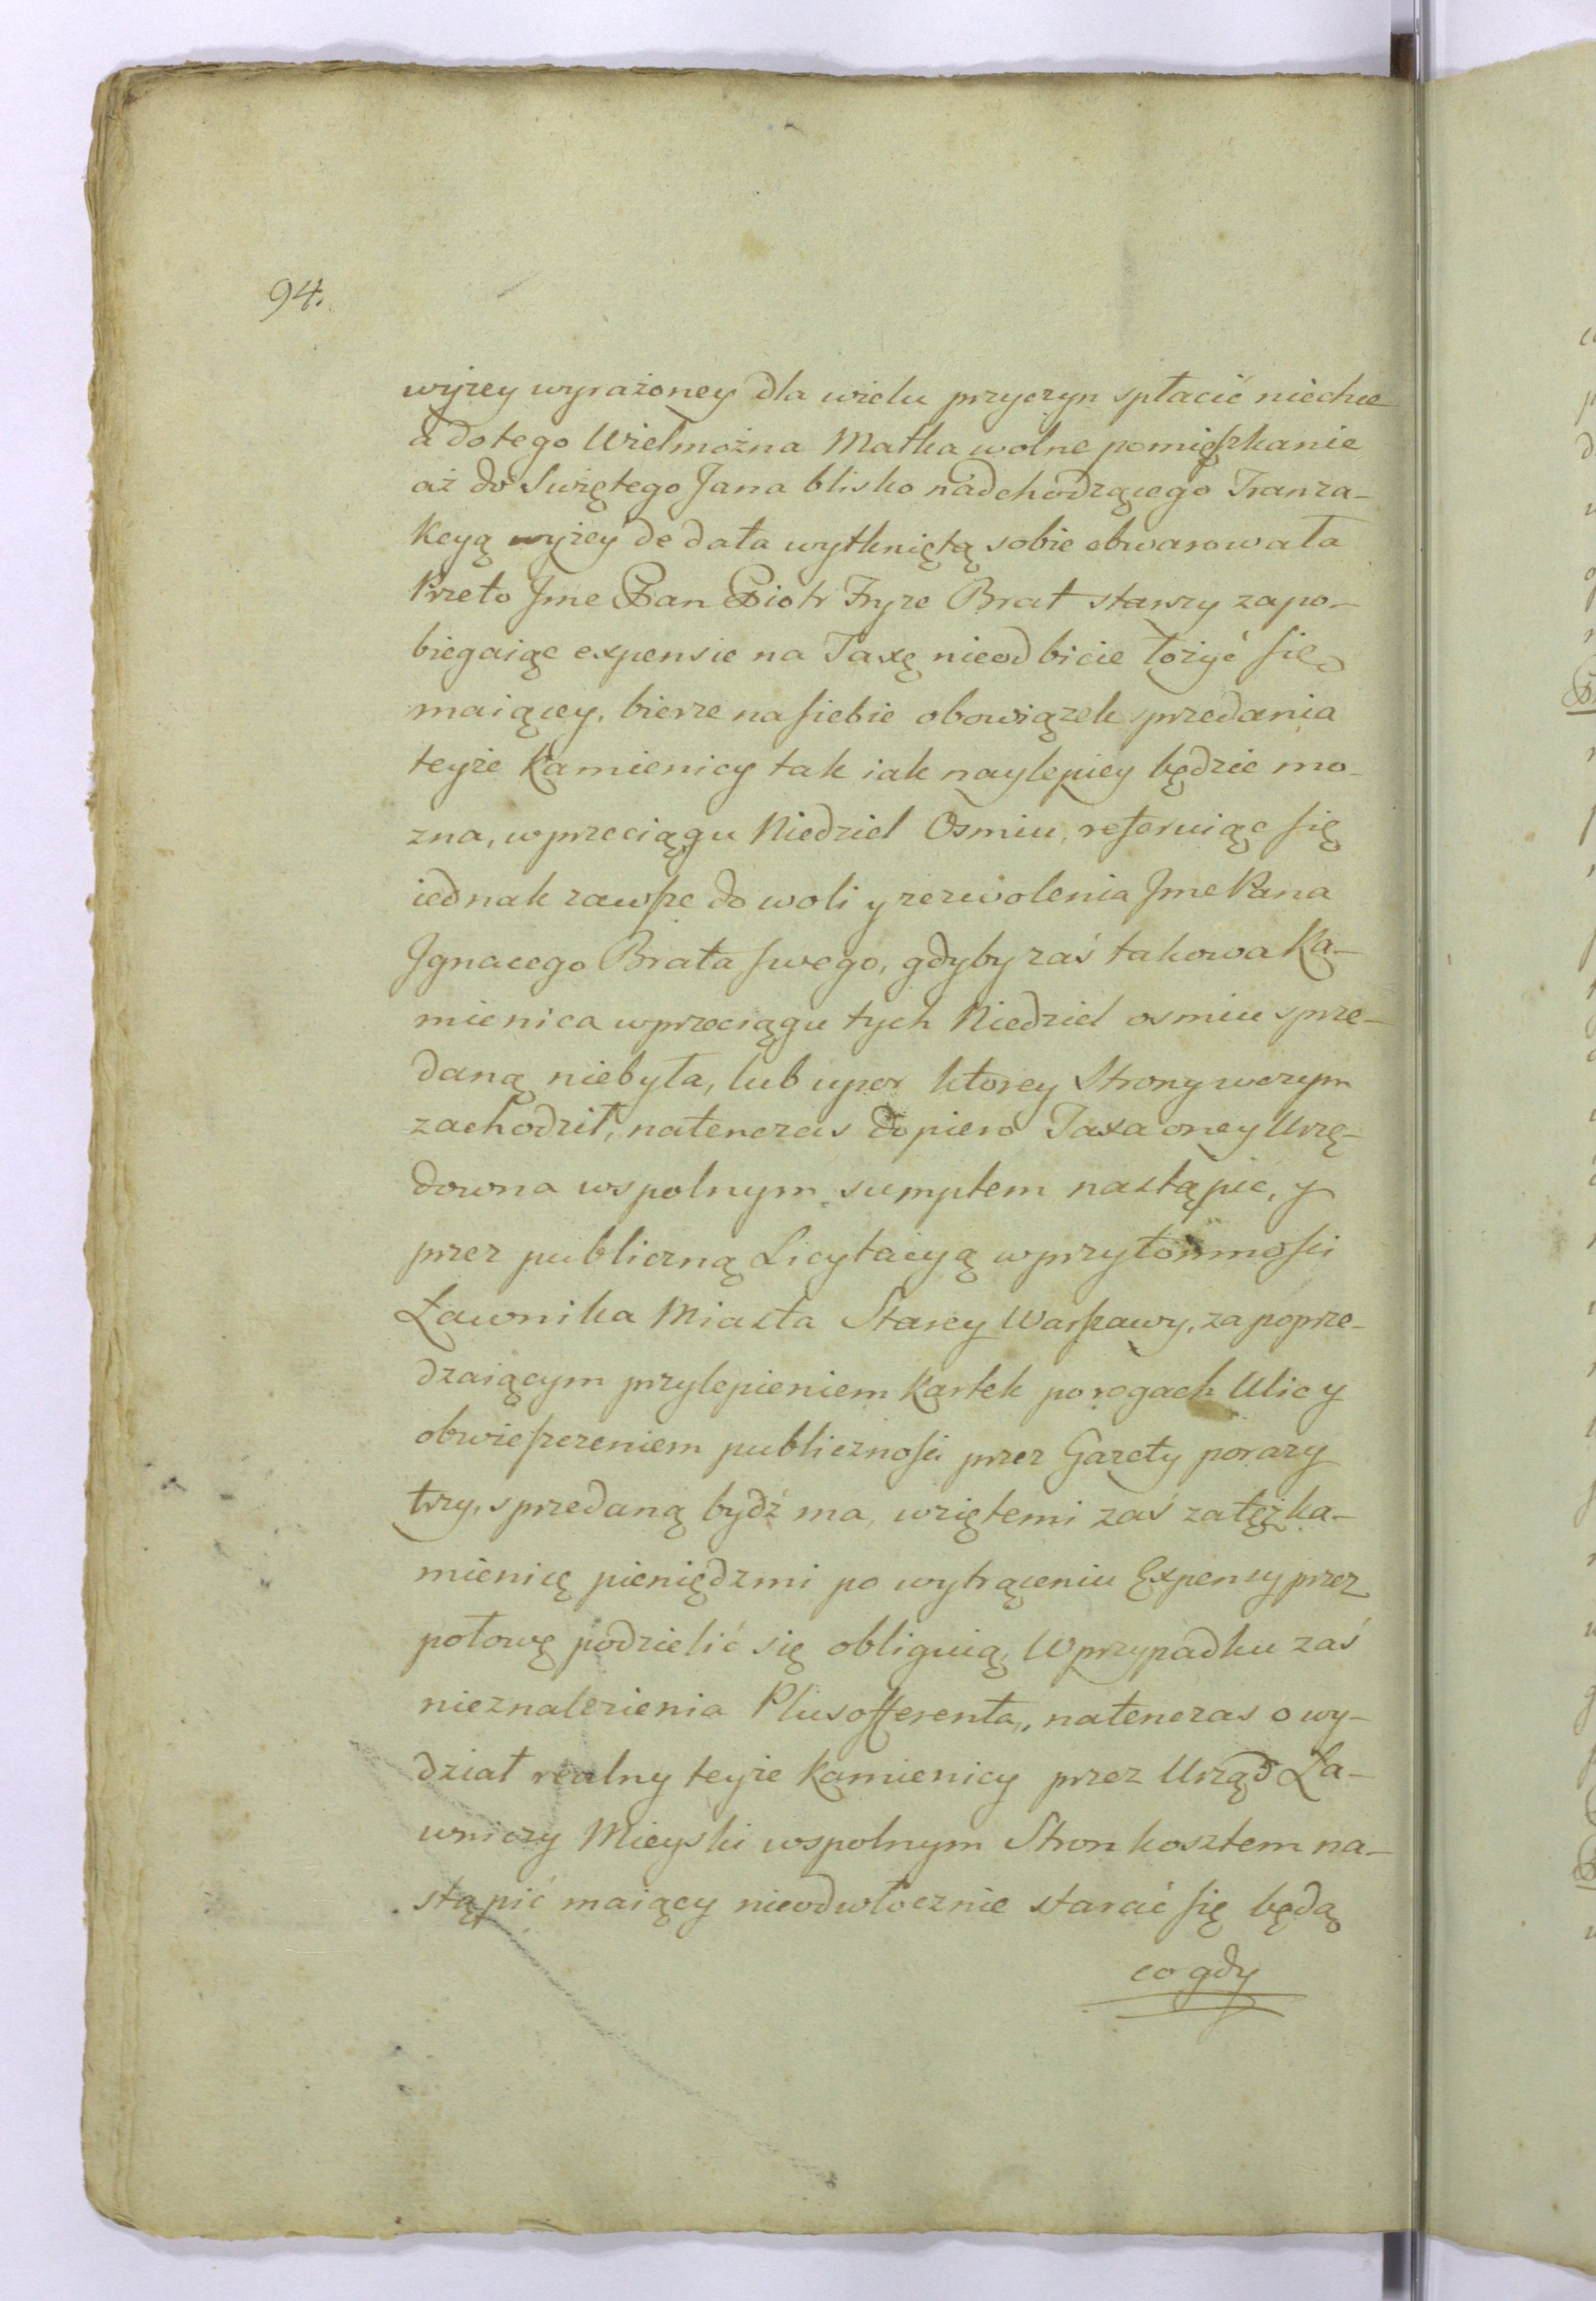 94.
wyżey wyrażoney dla wielu przyczyn spłacić niechce
a do tego Wielmożna Matka wolne pomięszkanie
aż do Swiętego Jana blisko nadchodzącego Tranza-
kcyą wyżey de data wytkniętą sobie obwarowała
Przeto Jme Pan Piotr Fryze Brat starszy zapo-
biegaiąc expensie na Taxę nieodbicie łożyć się
maiącey, bierze na siebie obowiązek sprzedania
teyże Kamienicy tak iak naylepiey będzie mo-
zna, wprzeciągu Niedziel Osmiu, referuiąc się
iednak zawsze do woli y zezwolenia Jme Pana
Jgnacego Brata swego, gdyby zaś takowa Ka-
mienica wprzeciągu tych Niedziel osmiu sprze-
daną niebyła, lub upor ktorey Strony wczym
zachodził, natenczas dopiero Taxa oney Urzę-
downa wspolnym sumptem nastąpić, y
przez publiczną Licytacyą wprzytomności
Ławnika Miasta Starey Warszawy, za poprze-
dzaiącym przylepieniem kartek po rogach Ulic y
obwieszczeniem publiczności przez Gazety porazy
trzy, sprzedaną bydź ma, wziętemi zaś za tęż ka-
mienicę pieniędzmi po wytrąceniu Expensy przez
połowę podzielić się obliguią, Wprzypadku zaś
nieznalezienia Plusofferenta, natenczas o wy-
dział realny teyże kamienicy przez Urząd Ła-
wniczy Mieyski wspolnym Stron kosztem na-
stąpić maiący nieodwłocznie starać się będą
co gdy